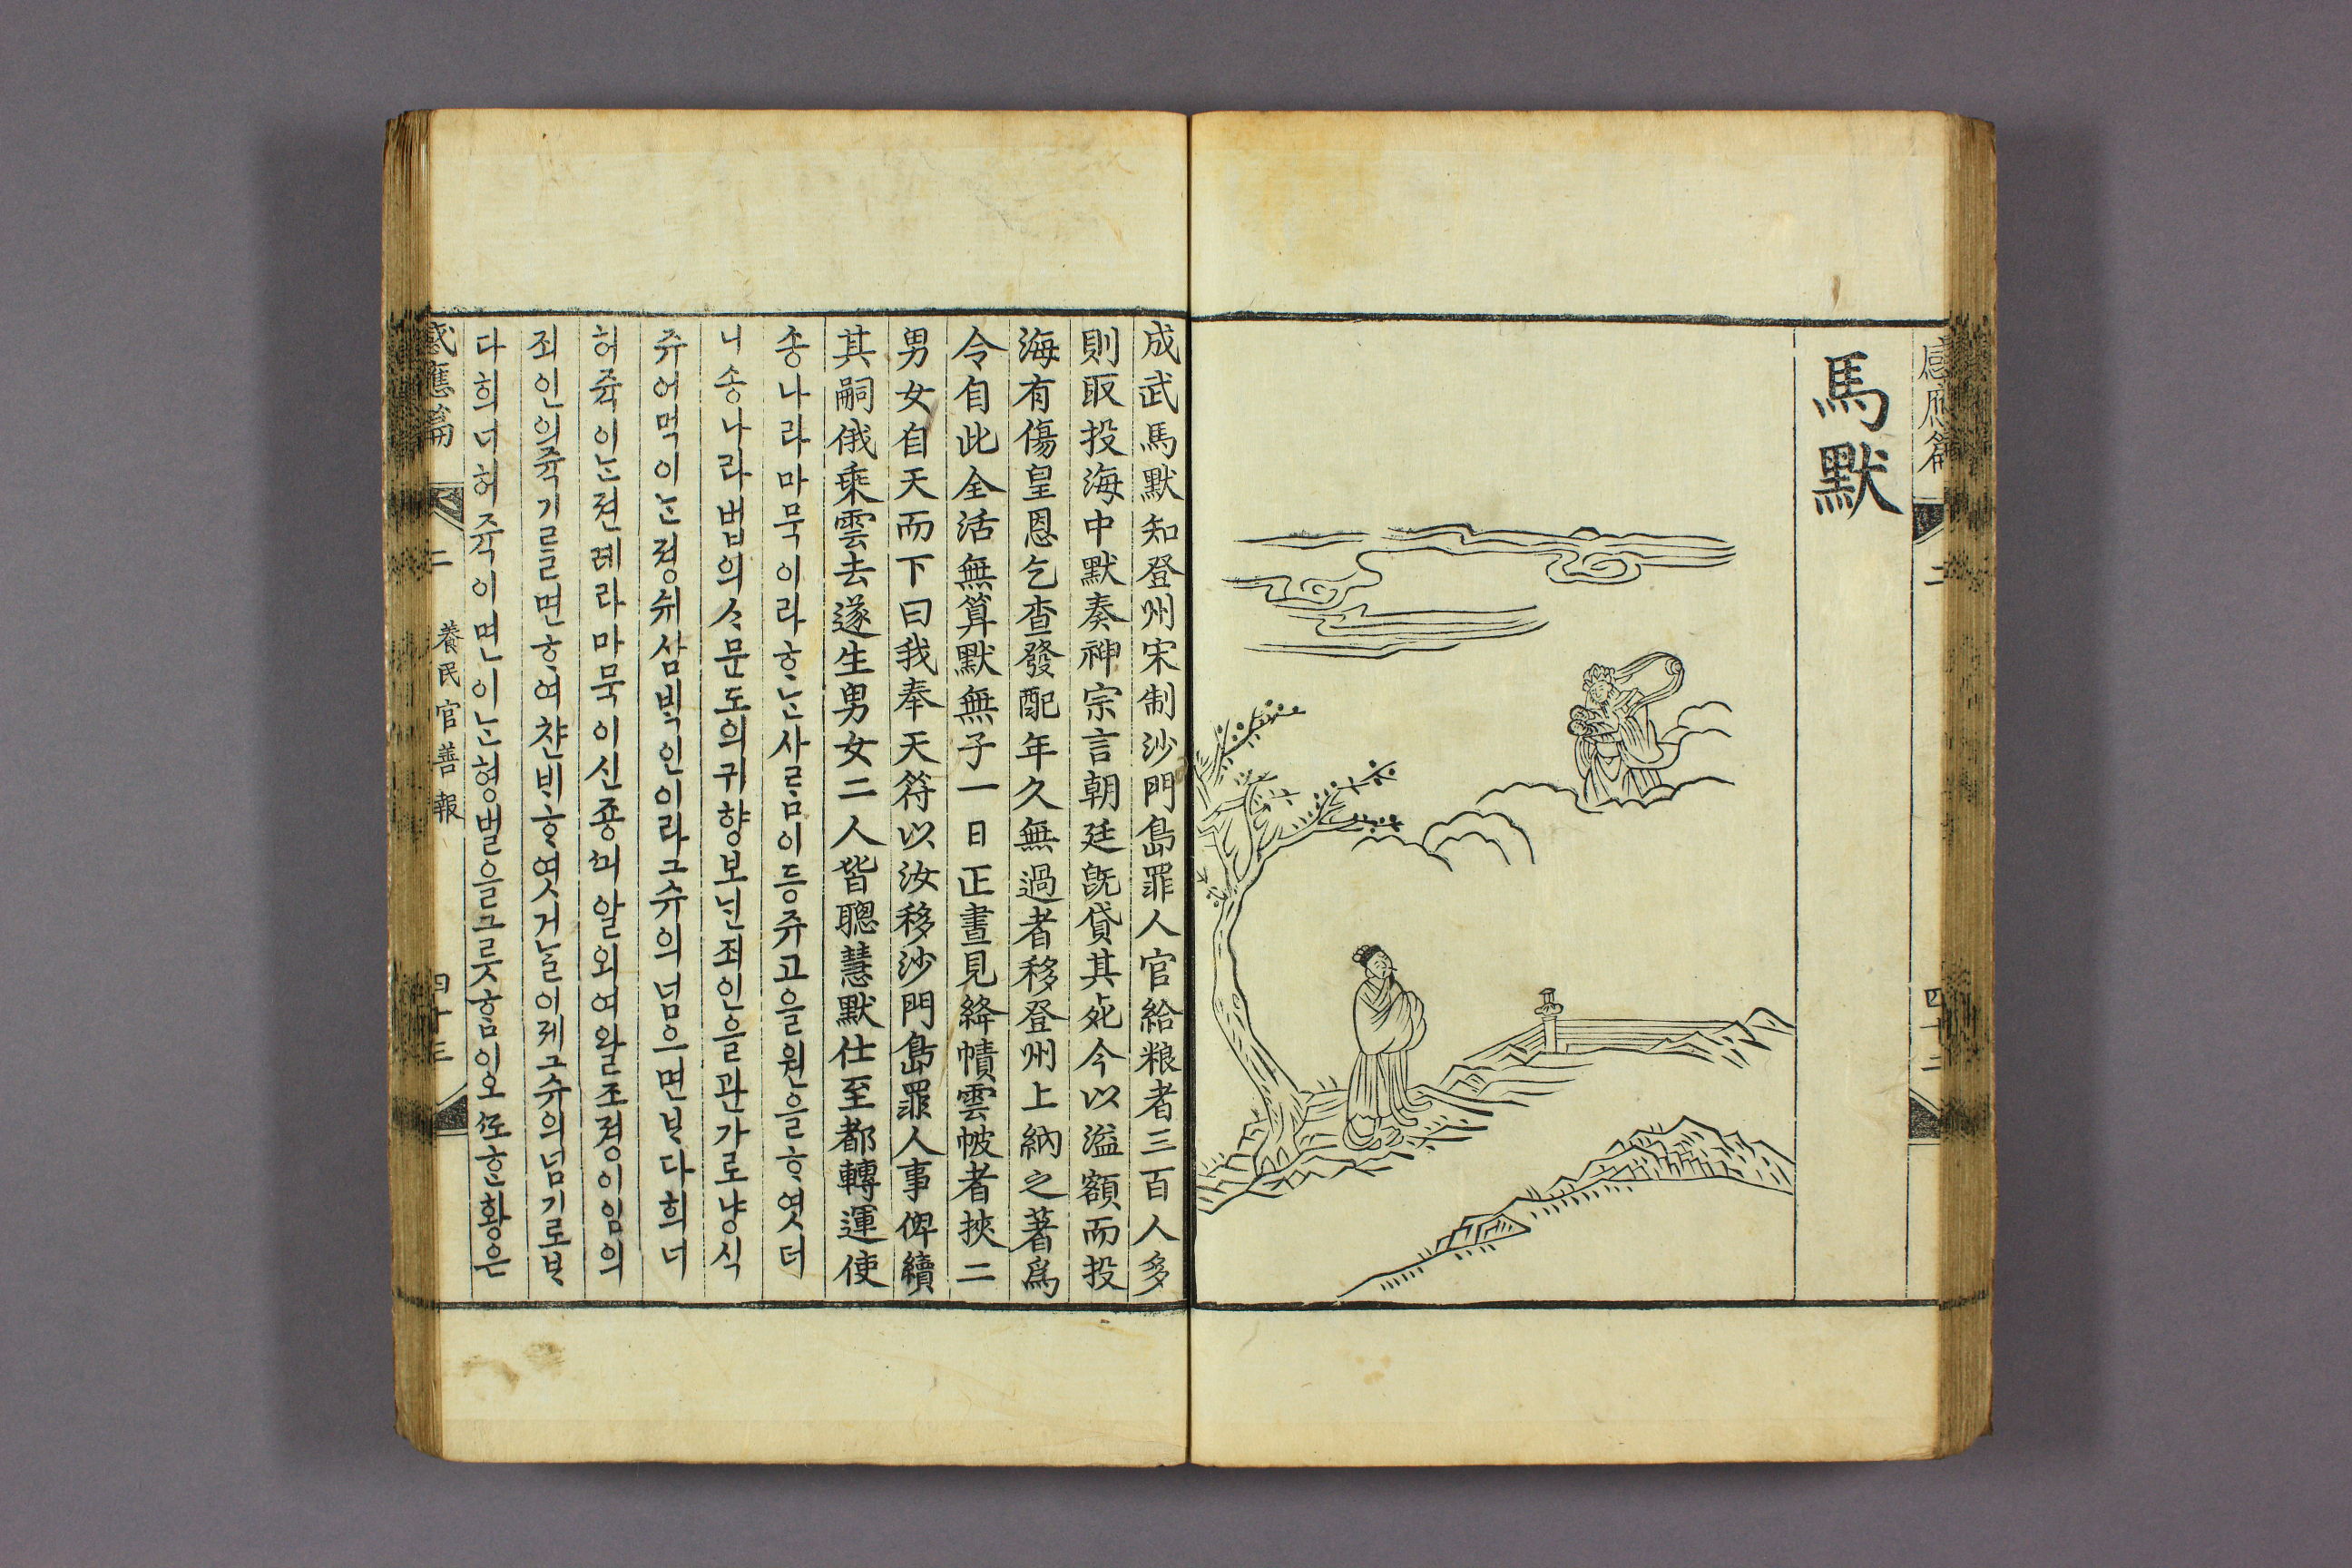 感應篇 二 四十二
馬默
成武馬默知登州宋制沙門島罪人官給粮者三百人多
則取投海中默奏神宗言朝廷旣貸其死今以溢額而投
海有傷皇恩乞查發配年久無過者移登州上納之著爲
令自此全活無算默無子一日正晝見絳幘雲帔者挾二
男女自天而下曰我奉天符以汝移沙門島罪人事俾續
其嗣俄乘雲去遂生男女二人皆聰慧默仕至都轉運使
송나라마묵이라ᄒᆞᄂᆞᆫ사ᄅᆞᆷ이등쥬고을원을ᄒᆞ엿더
니송나라법의ᄉᆞ문도의귀향보ᄂᆡᆫ죄인을관가로냥식
쥬어먹이ᄂᆞᆫ졍쉬삼ᄇᆡᆨ인이라그슈의넘으면ᄇᆞ다희너
허쥭이ᄂᆞᆫ젼례라마묵이신죵ᄭᅴ알외여왈조졍이임의
죄인의쥭기ᄅᆞᆯ면ᄒᆞ여챤ᄇᆡᄒᆞ엿거ᄂᆞᆯ이제그슈의넘기로ᄇᆞ
다희너허쥭이면이ᄂᆞᆫ형벌을그릇ᄒᆞᆷ이오ᄯᅩᄒᆞᆫ황은
感應篇 二 養民官善報 四十三